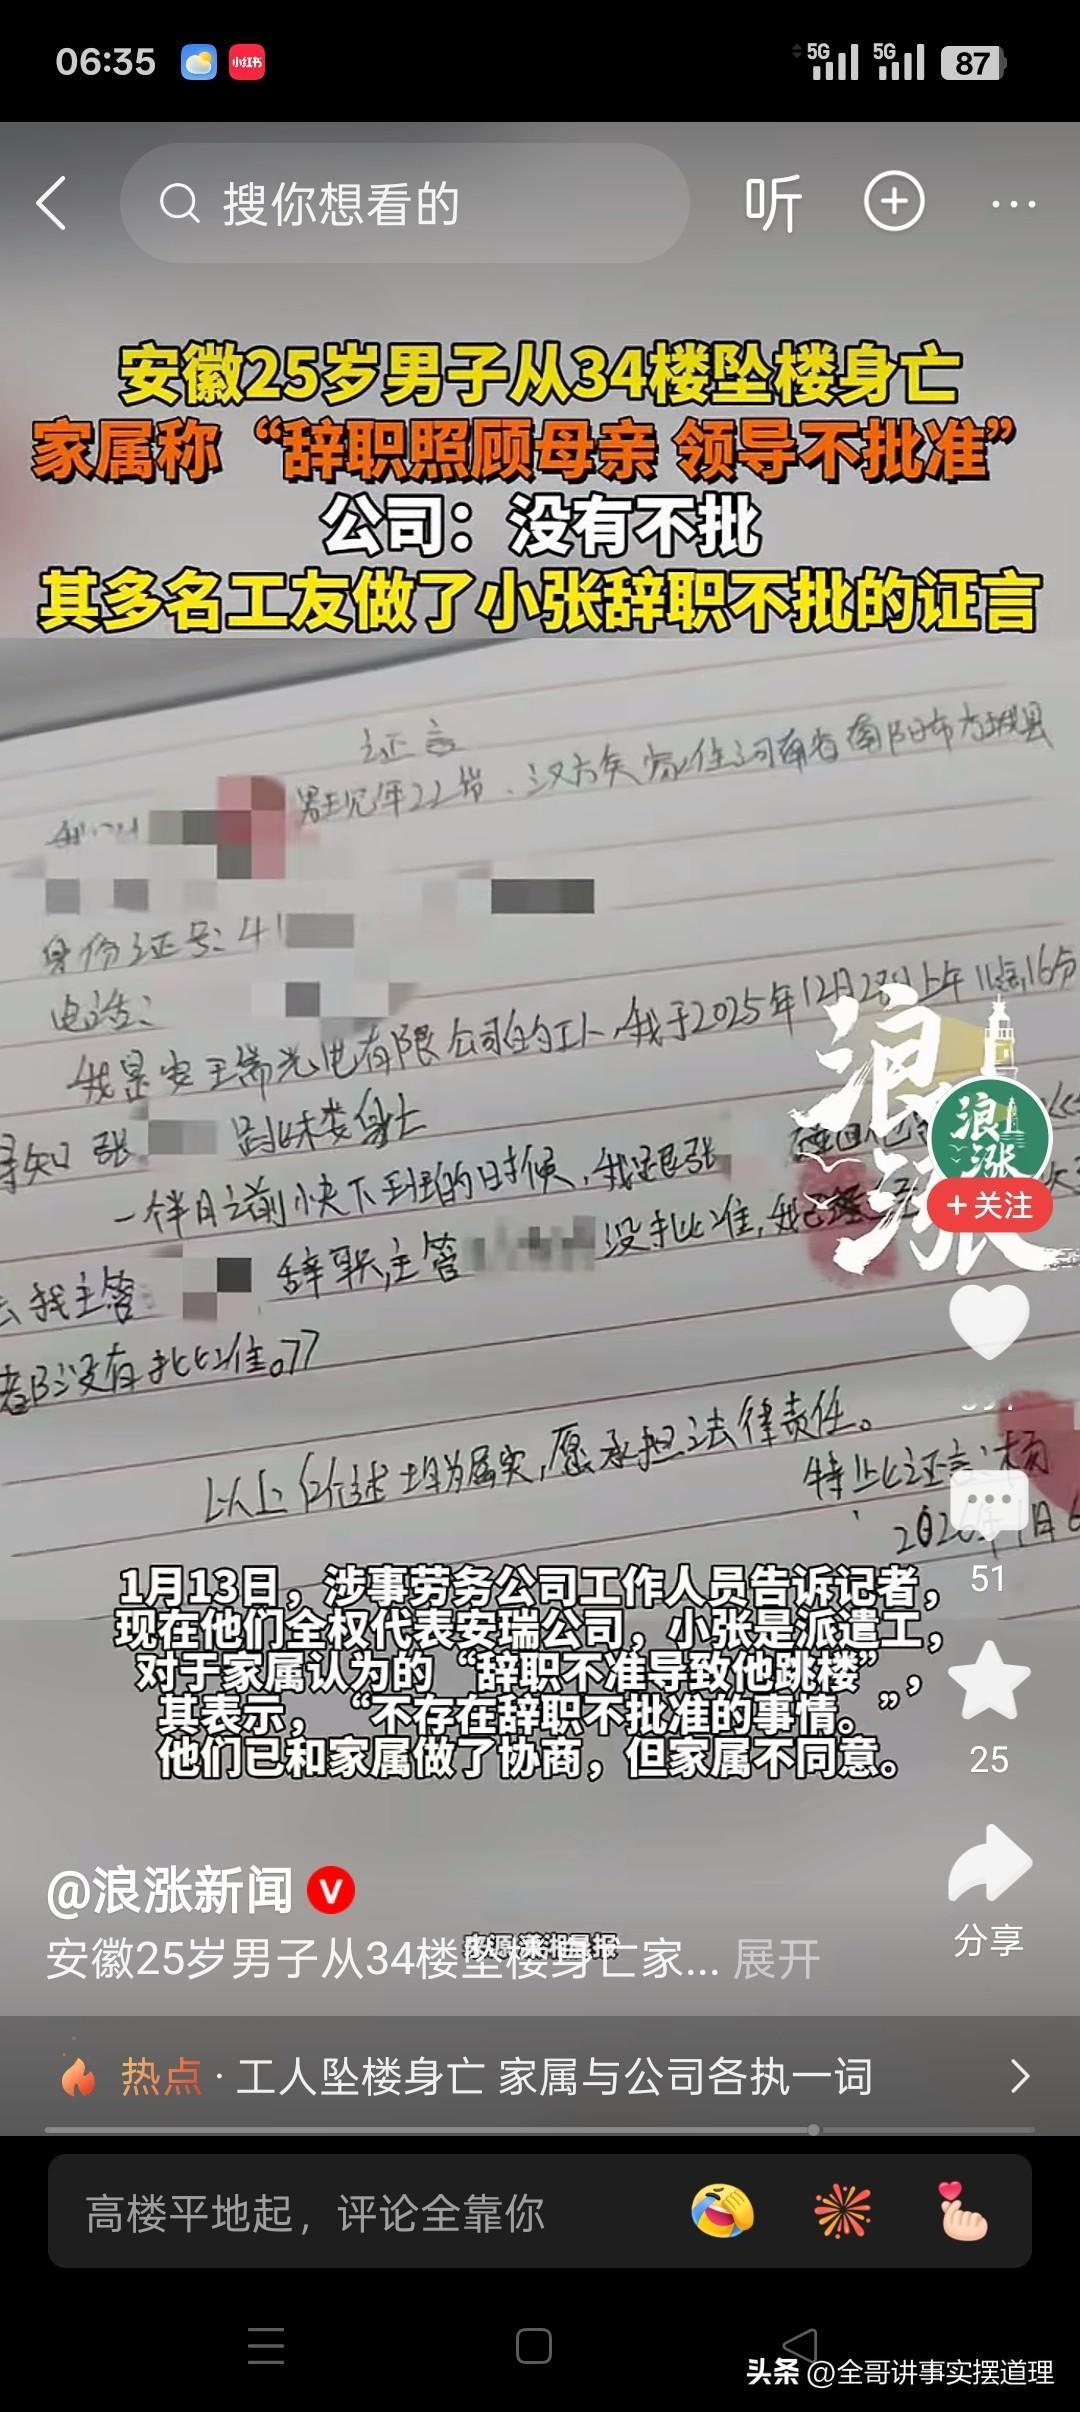 06:35
小红书
5G
5G
87
搜你想看的
听
安徽25岁男子从34楼坠楼身亡
家属称“辞职照顾母亲 领导不批准”
公司：没有不批
其多名工友做了小张辞职不批的证言
证言
男 现年22岁，汉族 家住河南省南阳市方城县
身份证号：41
电话：
我是安 瑞光电有限公司的工人，我于2025年12月28日上午11点16分
得知 张 跳楼身亡
一个半月之前 快下班的时候，我跟张
去找主管 辞职，主管 没批准，
都没有批准。
以上所述均为属实，愿承担法律责任。
特此证言：杨
2026年1月6
浪涨
浪涨
+关注
51
1月13日，涉事劳务公司工作人员告诉记者，
现在他们全权代表安瑞公司，小张是派遣工，
对于家属认为的“辞职不准导致他跳楼”，
其表示，“不存在辞职不批准的事情。”
他们已和家属做了协商，但家属不同意。
25
分享
@浪涨新闻
来源:潇湘晨报
安徽25岁男子从34楼坠楼身亡家... 展开
热点 · 工人坠楼身亡 家属与公司各执一词
高楼平地起，评论全靠你
头条 @全哥讲事实摆道理